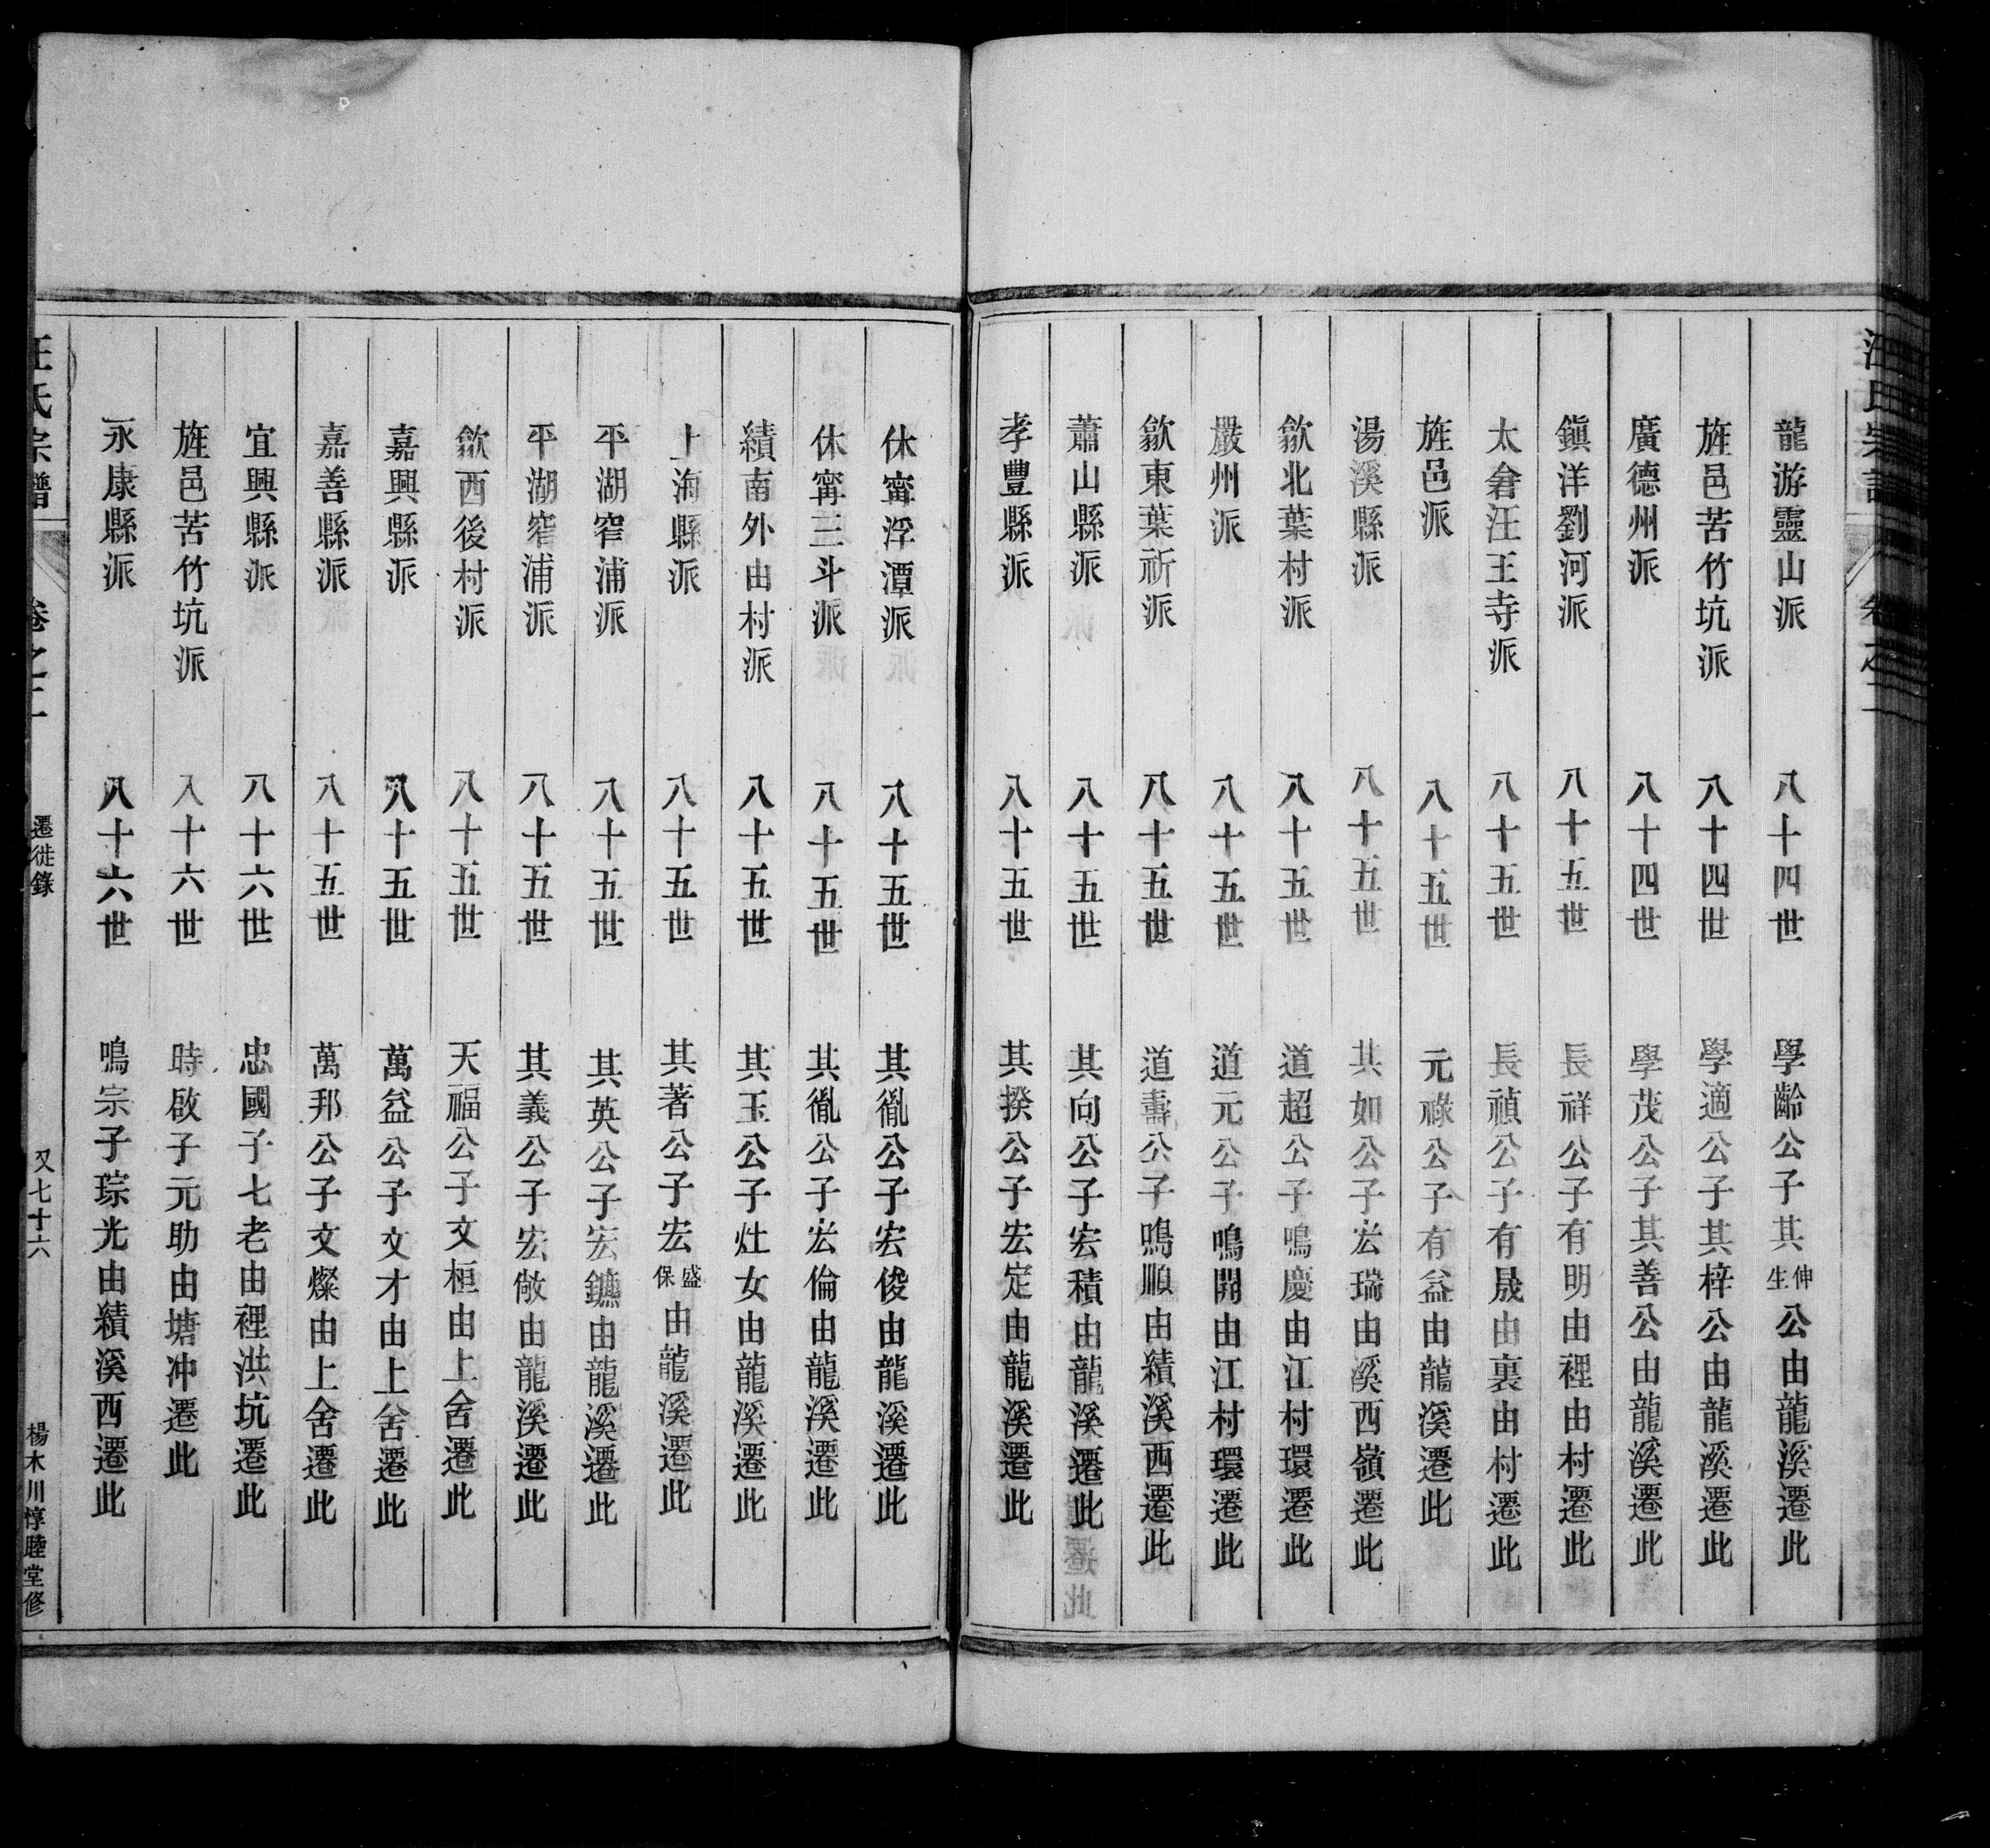 汪氏宗譜 卷之二
龍游靈山派 八十四世 學齡公子其伸生公由龍溪遷此
旌邑苦竹坑派 八十四世 學適公子其梓公由龍溪遷此
廣德州派 八十四世 學茂公子其善公由龍溪遷此
鎭洋劉河派 八十五世 長祥公子有明由裡由村遷此
太倉汪王寺派 八十五世 長禎公子有晟由裏由村遷此
旌邑派 八十五世 元祿公子有益由龍溪遷此
湯溪縣派 八十五世 其如公子宏瑞由溪西嶺遷此
歙北葉村派 八十五世 道超公子鳴慶由江村環遷此
嚴州派 八十五世 道元公子鳴開由江村環遷此
歙東葉祈派 八十五世 道壽公子鳴順由績溪西遷此
蕭山縣派 八十五世 其向公子宏積由龍溪遷此
孝豐縣派 八十五世 其揆公子宏定由龍溪遷此
休寗浮潭派 八十五世 其胤公子宏俊由龍溪遷此
休寗三斗派 八十五世 其胤公子宏倫由龍溪遷此
績南外由村派 八十五世 其玉公子灶女由龍溪遷此
上海縣派 八十五世 其著公子宏盛保由龍溪遷此
平湖窄浦派 八十五世 其英公子宏鑣由龍溪遷此
平湖窄浦派 八十五世 其義公子宏敞由龍溪遷此
歙西後村派 八十五世 天福公子文桓由上舍遷此
嘉興縣派 八十五世 萬益公子文才由上舍遷此
嘉善縣派 八十五世 萬邦公子文燦由上舍遷此
宜興縣派 八十六世 忠國子七老由裡洪坑遷此
旌邑苦竹坑派 八十六世 時啟子元助由塘冲遷此
永康縣派 八十六世 鳴宗子琮光由績溪西遷此
汪氏宗譜 卷之二 遷徙錄 又七十六 楊木川惇睦堂修